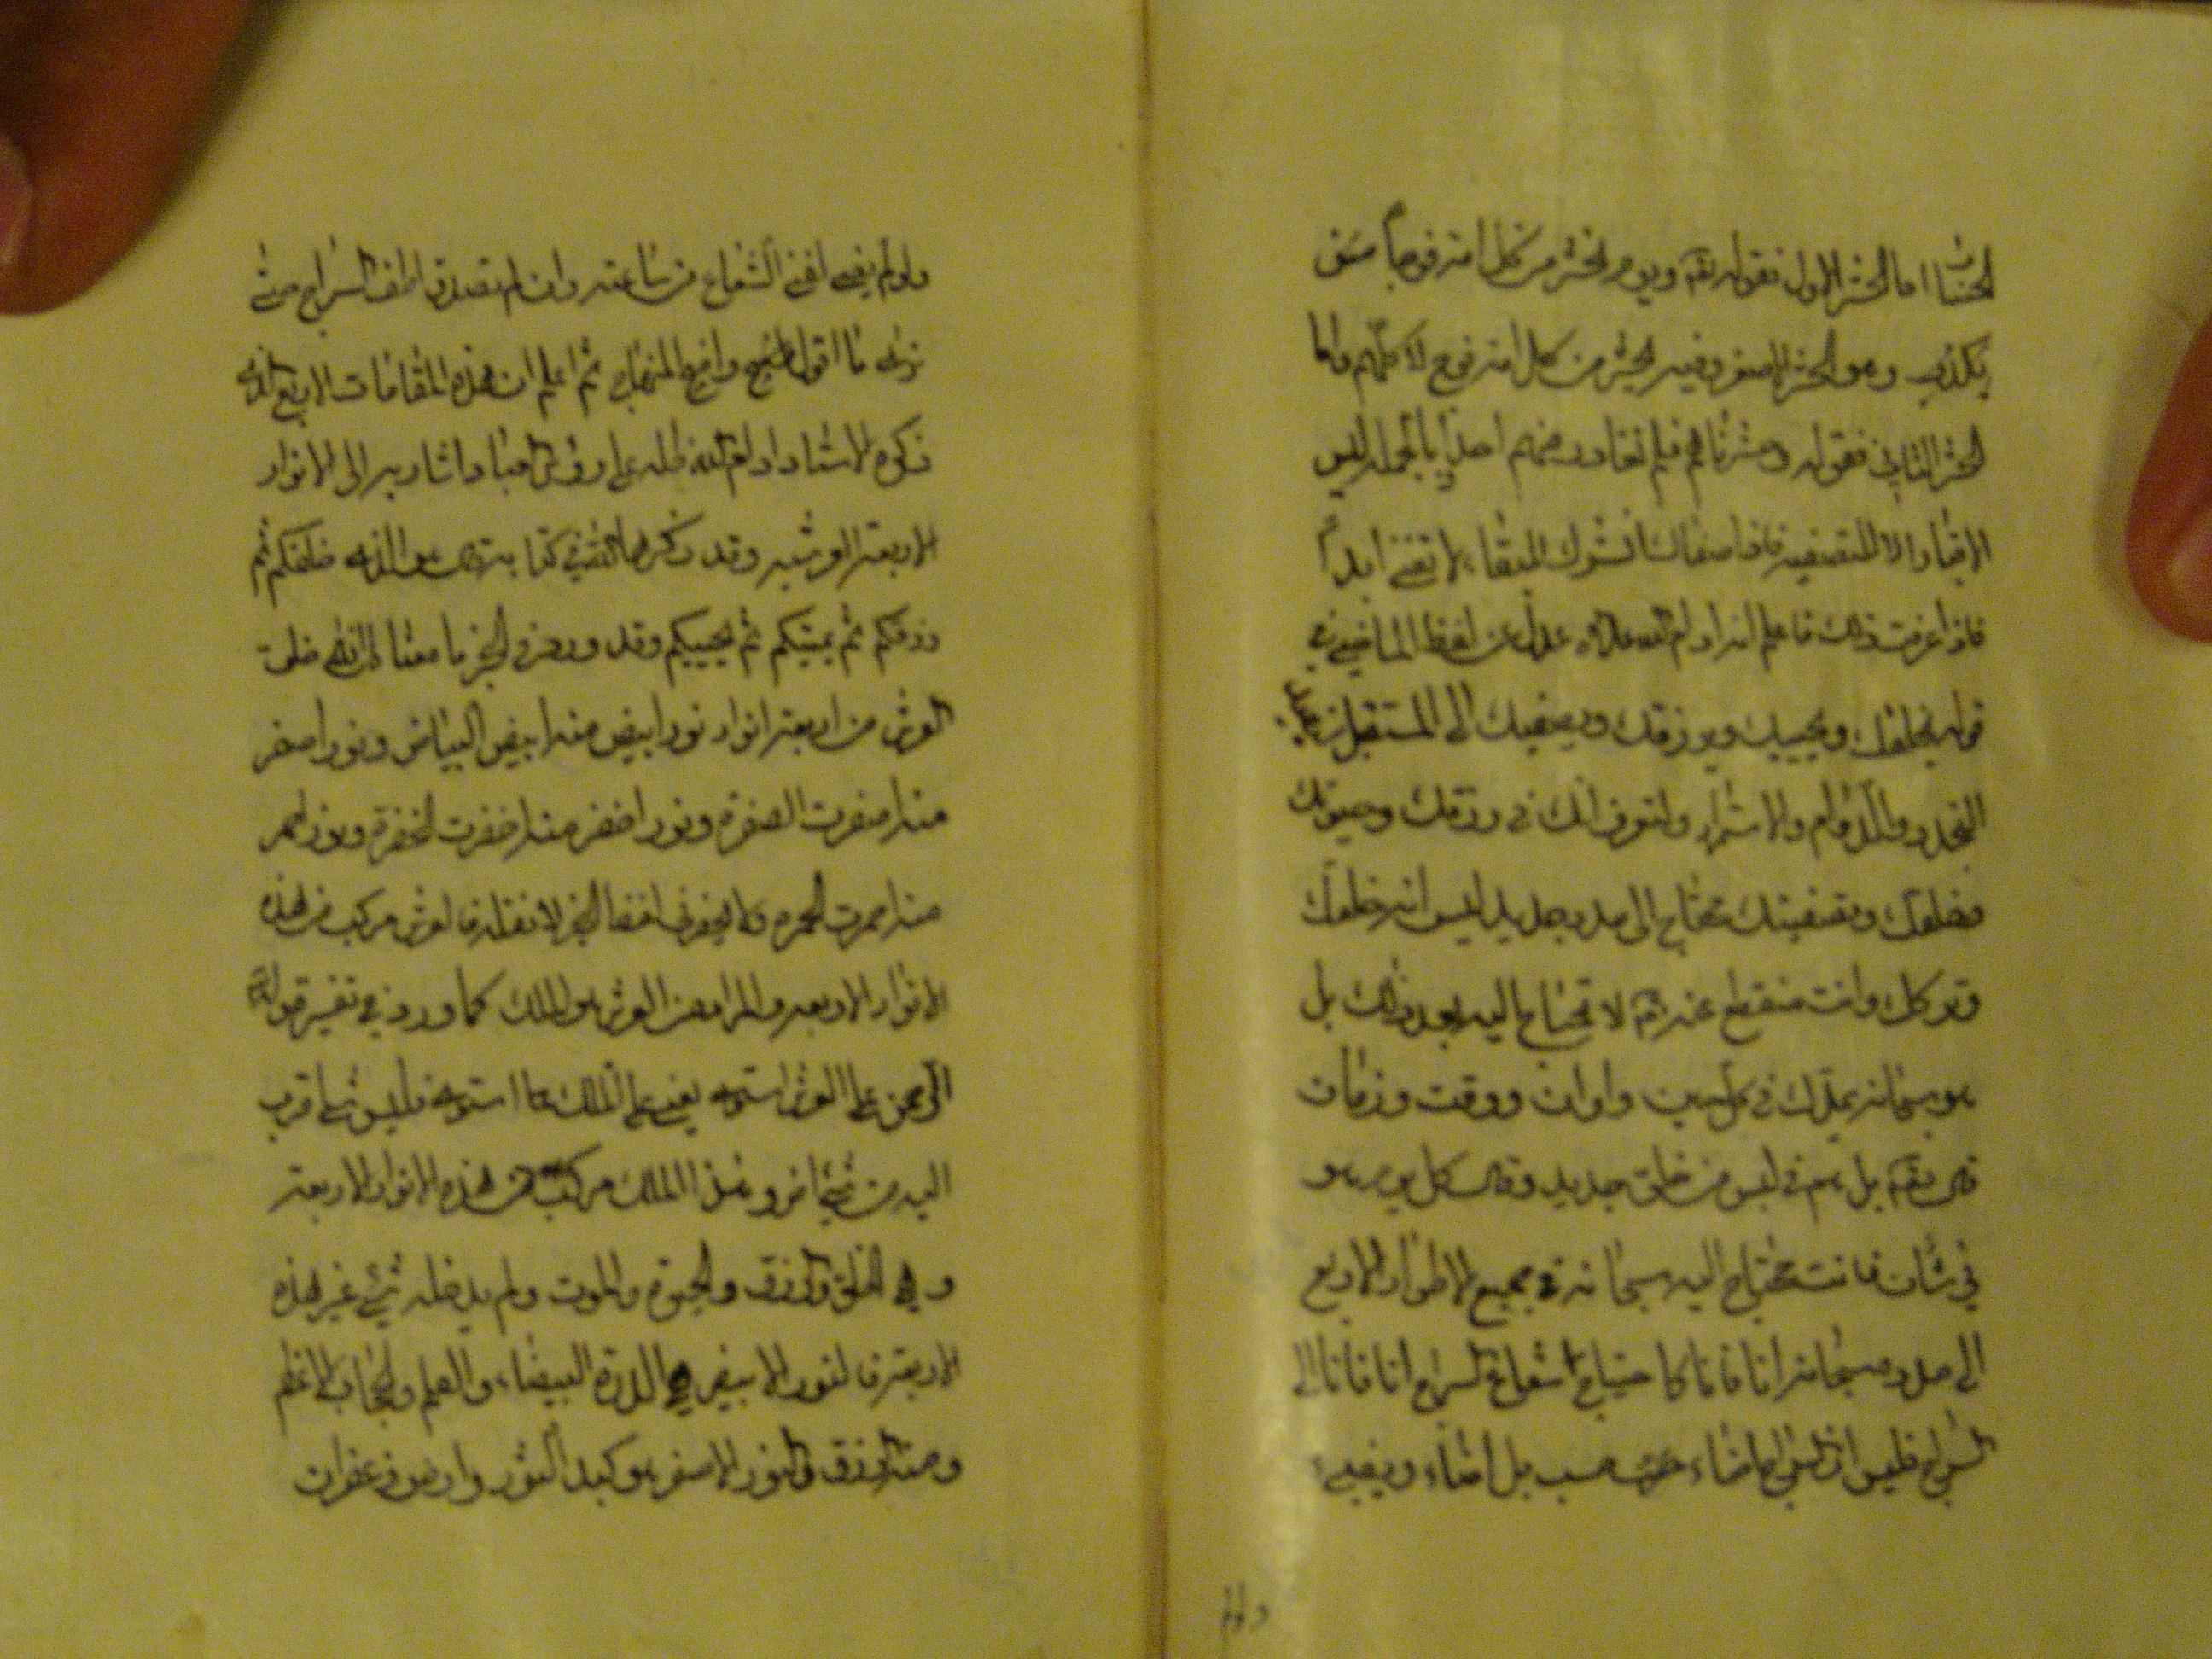 الحساب اما الحشر الاول فقوله تعه ويوم نحشر من كل امة فوجاً ممن
يكذب وهو الحشر الاصغر وفيه يحشر من كل امة فوج لا كلهم واما
الحشر الثاني فقوله وحشرناهم فلم نغادر منهم احداً بالجملة ليس
الافناء الا للتصفية فاذا صفاك انشرك للبقاء لا تفنى ابداً
فاذا عرفت ذلك فاعلم انه ادام الله علاه عدل عن لفظ الماضي في
قوله يخلقك ويحييك ويرزقك ويصفيك الى المستقبل
التجدد والدوام والاستمرار ولتعرف انك في رزقك وحيوتك
وخلقك وتصفيتك تحتاج الى مدد جديد ليس انه خلقك
وتركك وانت منقطع عنه ثم لا تحتاج اليه بعد ذلك بل
هو سبحانه يمدك في كل حين واوان ووقت وزمان
قال تعه بل هم في لبس من خلق جديد وقال كل يوم هو
في شان فانت تحتاج اليه سبحانه في جميع الاطوار الاربع
الى مدده سبحانه انا فانا كاحتياج اشعة السراج انا فانا الى
السراج فليس ان السراج اضاء حسب بل اضاء ويضيء
ولولم
ولولم يضيء افنى الشعاع من ساعته وان لم تصدق اطف السراج حتى
ترى ما اقول واضح المنهاج ثم اعلم ان هذه المقامات الاربع الذي
ذكره الاستاد ادام الله ظله على رؤس العباد اشار به الى الانوار
الاربعة العرشيه وقد ذكرها الله في كتابه قال هو الذي خلقكم ثم
رزقكم ثم يميتكم ثم يحييكم وقد ورد في الخبر ما معناه ان الله خلق
العرش من اربعة انوار نور ابيض منه ابيض البياض ونور اصفر
منه اصفرت الصفرة ونور اخضر منه اخضرت الخضرة ونور احمر
منه احمرت الحمرة ولا يحضرني الخبر لانقله فالعرش مركب من هذه
الانوار الاربعه والمراد من العرش هو الملك كما ورد في تفسير قوله تعه
الرحمن على العرش استوى يعني على الملك استوى فليس شيء اقرب
اليه من شيء اخر وهذا الملك مركب من هذه الانوار الاربعة
وهي الخلق والرزق والحيوة والموت ولم يدخله شيء غير هذه
الاربعة فالنور الابيض هي الدرة البيضاء والعلم والحجاب الاعظم
ومنه الرزق والنور الاصفر هو كبد الثور وارض زعفران